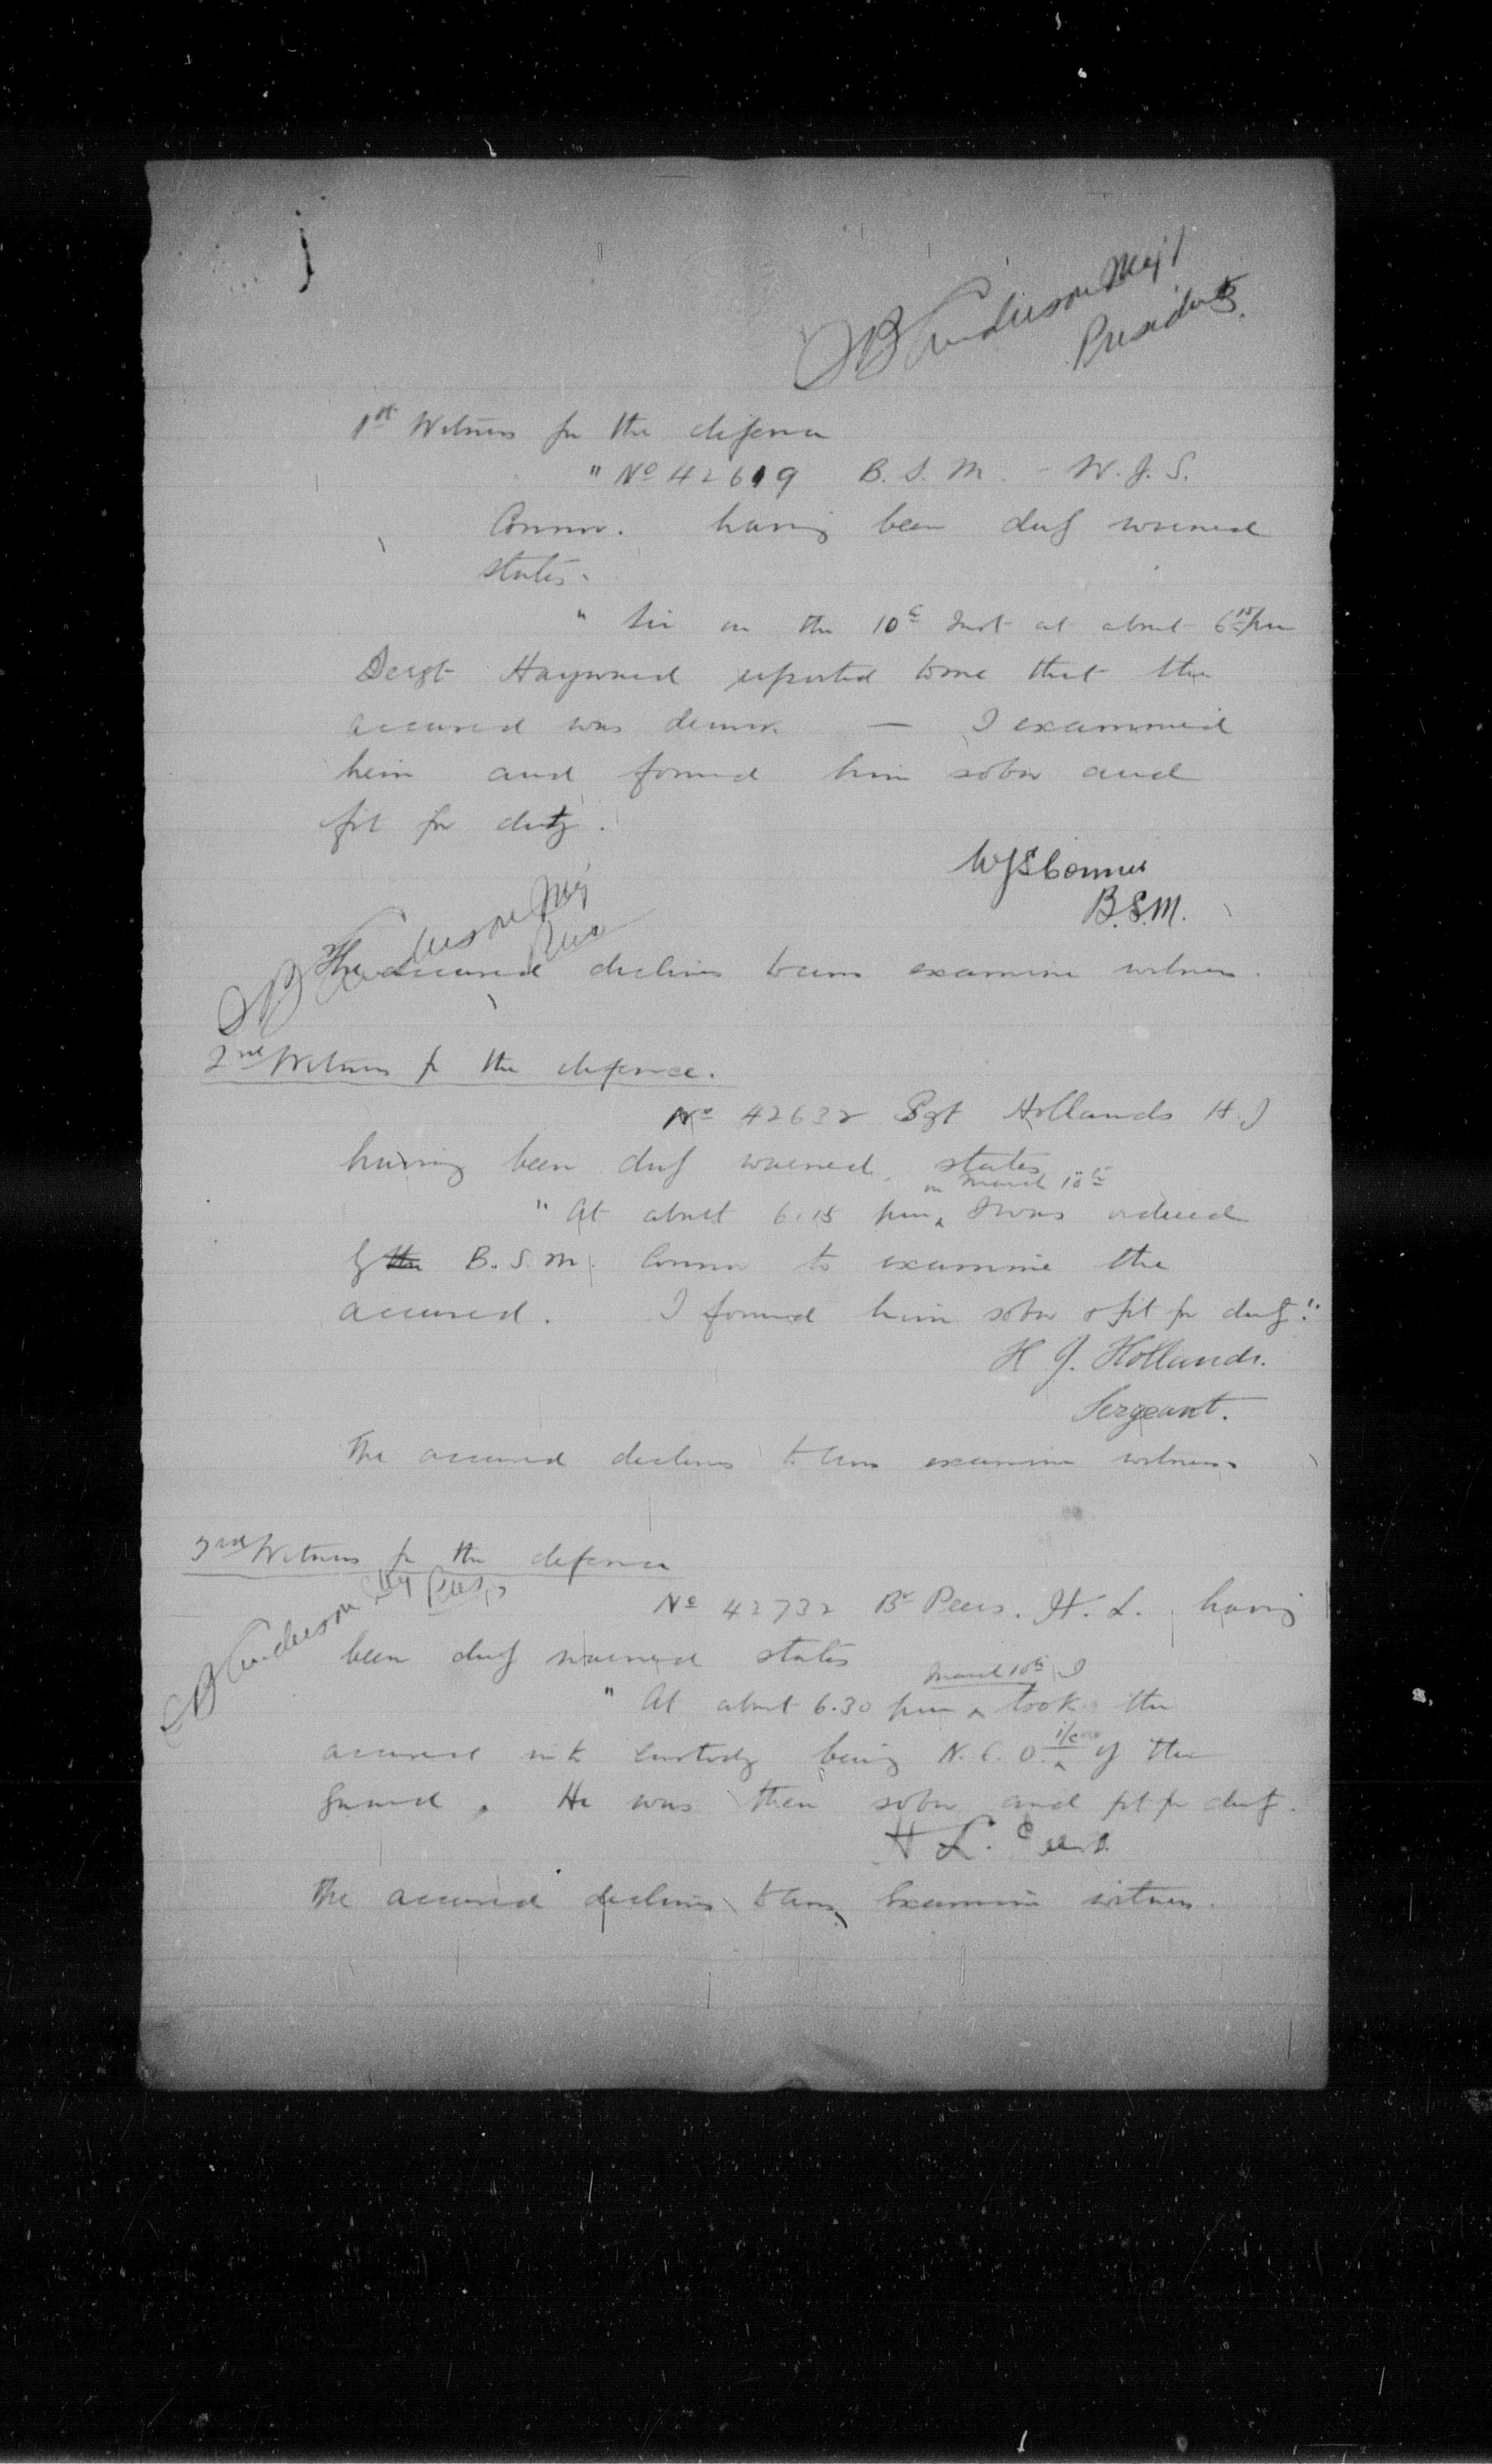 SB Anderson Maj
President
1st Witness for the defence
"No 42619 B.S.M. - W.J.S.
Connor. having been duly warned
states.
"Sir on the 10th Inst at about 6.15 pm
Sergt Hayward reported to me that the
accused was drunk — I examined
him and found him sober and
fit for duty.
WJS Connor
B.S.M.
Anderson Maj
Pres
The accused declines to cross examine witness.
2nd Witness for the defence.
No 42632 Sgt Hollands H.J
having been duly warned, states
on March 10th
"At about 6.15 pm I was ordered
by the B.S.M. Connor to examine the
accused. I found him sober & fit for duty."
H J. Hollands.
Sergeant.
The accused declines to cross examine witness
3rd Witness for the defence
Anderson Maj Pres
No 42732 Br Peers. H. L. having
been duly warned states
March 10th I
"At about 6.30 pm took the
accused into custody being N.C.O. i/c of the
guard. He was then sober and fit for duty.
H L. Peers.
The accused declines to cross examine witness.